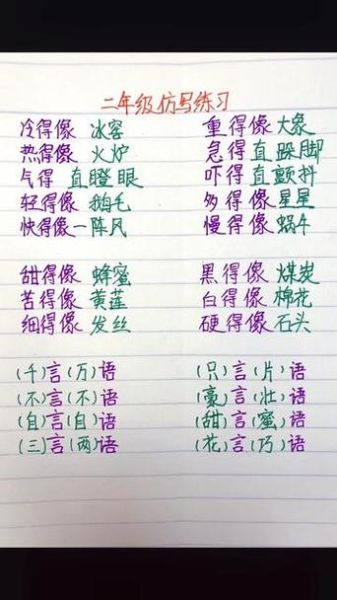 二年级仿写练习
冷得像 冰窖 重得像 大象
热得像 火炉 急得直跺脚
气得 直瞪眼 吓得直颤抖
轻得像 鹅毛 多得像 星星
快得像一阵风 慢得像 蜗牛
甜得像 蜂蜜 黑得像 煤炭
苦得像 黄莲 白得像 棉花
细得像 发丝 硬得像 石头
(千)言(万)语 (只)言(片)语
(不)言(不)语 (豪)言(壮)语
(自)言(自)语 (甜)言(蜜)语
(三)言(两)语 (花)言(巧)语